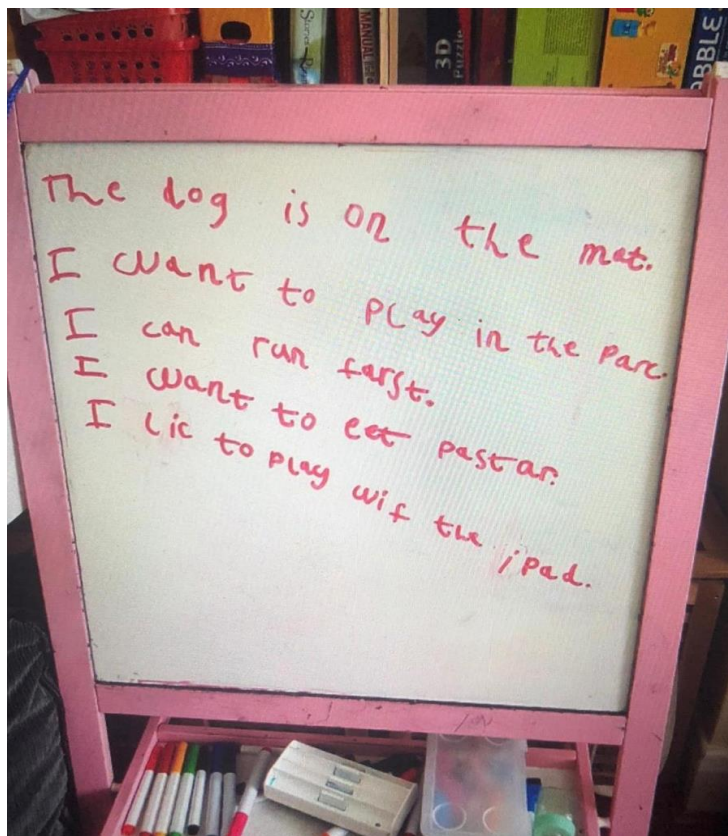 MANUAL
3D
Puzzle
ABBLE
The dog is on the mat.
I want to play in the parc.
I can run farst.
I want to eet pastar.
I lic to play wif the ipad.